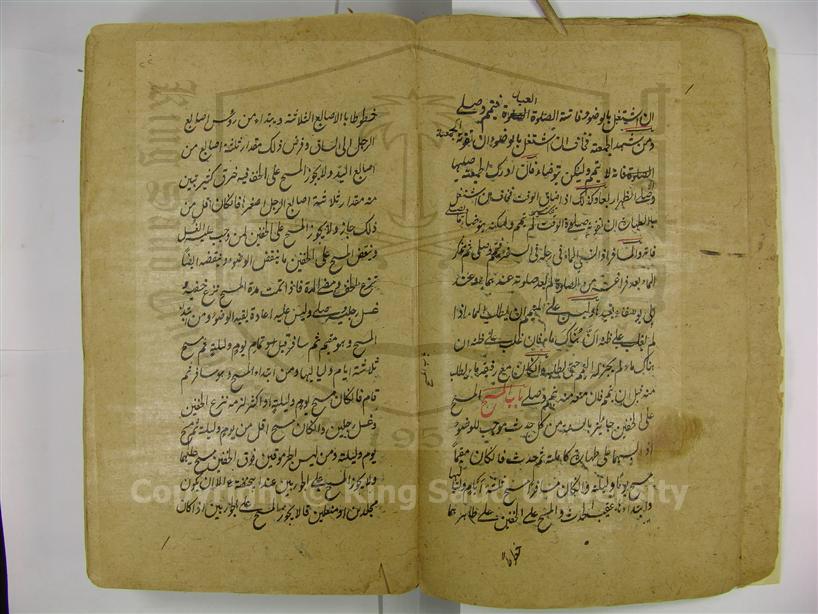 العيد
ان اشتغل بالوضوء فاتته الصلوة فيتيمم ويصلي
ومن شهد الجمعة فخاف ان اشتغل بالوضوء ان تفوته الجمعة
فانه لا يتيمم ولكن يتوضأ فان ادرك الجمعة صليها
وصلى الظهر اربعا وكذلك اذا ضاق الوقت فخاف ان اشتغل
بالطهارة ان تفوته صلوة الوقت لم يتيمم ولكنه يتوضأ ويصلي
فائتة والمسافر اذا نسي الماء في رحله في السفر فتيمم وصلى ثم ذكر
الماء بعد فراغه من الصلوة لم يعد صلوته عندهما وعند
ابي يوسف يعيد وليس على المتيمم ان يطلب الماء اذا
لم يغلب على ظنه ان هناك ماء فان غلب على ظنه ان
هناك ماء لم يجز له التيمم حتى يطلبه وان كان مع رفيقه ماء يطلب
منه قبل ان يتيمم فان منعه منه تيمم وصلى باب المسح المسح
على الخفين جائز بالسنة من كل حدث موجب للوضوء
اذا لبسهما على طهارة كاملة ثم احدث فان كان مقيما
مسح يوما وليلة وان كان مسافرا مسح ثلثة ايام ولياليها
وابتداءها عقيب الحدث والمسح على الخفين على ظاهرهما
خطوطا
خطوطا بالاصابع الثلاثة ويبتداء من رؤس اصابع
الرجل الى الساق وفرض ذلك مقدار ثلثة اصابع من
اصابع اليد ولا يجوز المسح على الخف فيه خرق كثير تبين
منه مقدار ثلاثة اصابع الرجل اصغرها فان كان اقل من
ذلك جاز ولا يجوز المسح على الخفين لمن وجب عليه الغسل
وينقض المسح على الخفين ما ينقض الوضوء وينقضه ايضا
نزع الخف ومضى المدة فاذا تمت مدة المسح نزع خفيه و
غسل رجليه وصلى وليس عليه اعادة بقية الوضوء ومن ابتداء
المسح وهو مقيم ثم سافر قبل تمام يوم وليلة تمم مسح
ثلاثة ايام ولياليها ومن ابتداء المسح وهو مسافر ثم
قام فان كان مسح يوم وليلة او اكثر لزمه نزع الخفين
وغسل رجليه وان كان مسح اقل من يوم وليلة تمم مسح
يوم وليلة ومن لبس الجرموقين فوق الخفين مسح عليهما
ولا يجوز المسح على الجوربين عند ابي حنيفة الا ان يكون
مجلدين او منعلين وقالا يجوز المسح على الجوربين اذا كان
Copyright © King Saud University
1957